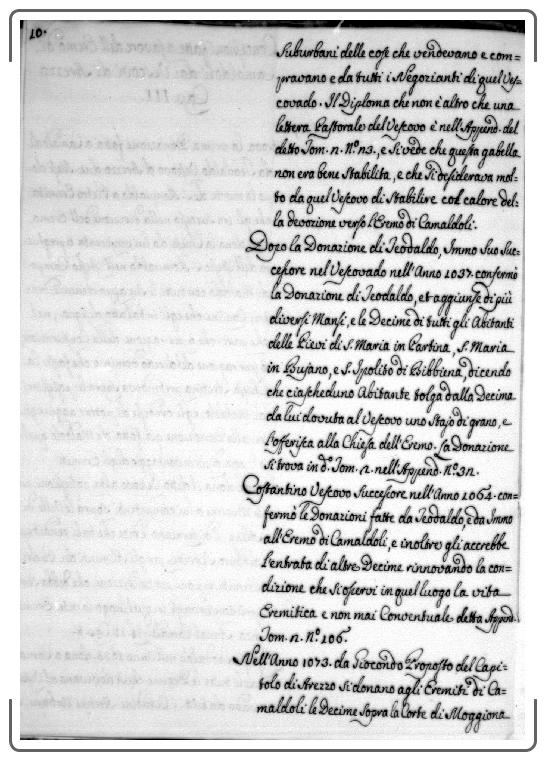 10.
Suburbani delle cose che vendevano e com=
pravano e da tutti i Negozianti di quel Ves=
covado. Il Diploma che non è altro che una
lettera Pastorale del Vescovo è nell'Append. del
detto Tom. n. N.º n3., e si vede che questa gabella
non era bene stabilita, e che si desiderava mol=
to da quel Vescovo di stabilire col calore del=
la devozione verso l'Eremo di Camaldoli.
Dopo la Donazione di Teodaldo, Immo suo Suc=
cessore nel Vescovado nell'Anno 1037. confermò
la Donazione di Teodaldo, et aggiunse di più
diversi Mansi, e le Decime di tutti gli Abitanti
delle Pievi di S. Maria in Partina, S. Maria
in Buiano, e S. Ipolito di Bibbiena, dicendo
che ciascheduno Abitante tolga dalla Decima
da lui dovuta al Vescovo uno Stajo di grano, e
l'offerisca alla Chiesa dell'Eremo. La Donazione
si trova in d.º Tom. n. nell'Append. N.º 3n.
Costantino Vescovo Successore nell'Anno 1064. con=
fermò le Donazioni fatte da Teodaldo, e da Immo
all'Eremo di Camaldoli, e inoltre gli accrebbe
l'entrata di altre Decime rinnovando la con=
dizione che si osservi in quel luogo la vita
Eremitica e non mai Conventuale detta Append.
Tom. n. N.º 106.
Nell'Anno 1073. da Giocondo Proposto del Capi=
tolo di Arezzo si donano agli Eremiti di Ca=
maldoli le Decime sopra la Corte di Moggiona